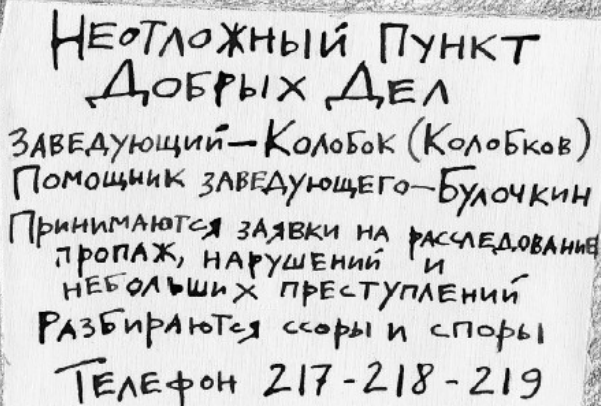 Неотложный пункт
Добрых Дел
Заведующий – Колобок (Колобков)
Помощник заведующего – Булочкин
Принимаются заявки на расследование
пропаж, нарушений и
небольших преступлений
Разбираются ссоры и споры
Телефон 217-218-219